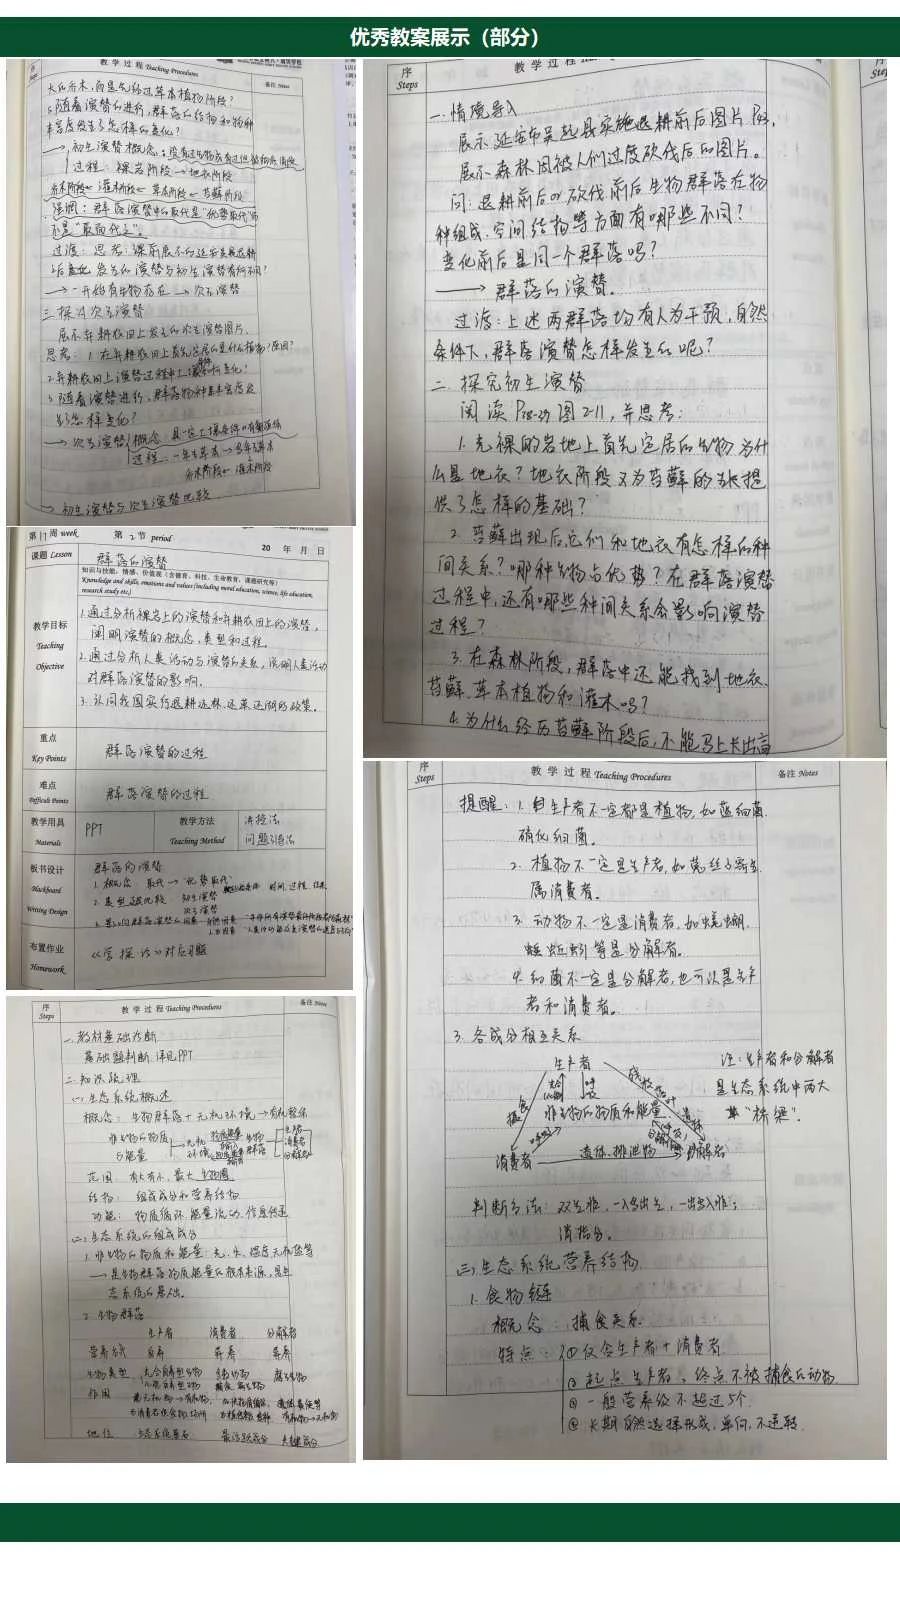 优秀教案展示（部分）
序 教学过程 Teaching Procedures 备注 Notes
Steps
大的乔木，而是先经过草本植物阶段？
5.随着演替的进行，群落的结构和物种
丰富度发生了怎样的变化？
→初生演替概念：
过程：裸岩阶段→地衣阶段
乔木阶段←灌木阶段←草本阶段←苔藓阶段
强调：群落演替中的取代是“优势取代”而
不是“取而代之”。
过渡：思考：课前展示的延安吴起退耕
之后变化发生的演替与初生演替有何不同？
→一开始有生物存在→次生演替
三.探究次生演替
展示弃耕农田上发生的次生演替图片，
思考：1.在弃耕农田上首先定居的是什么植物？原因？
2.弃耕农田上演替过程中土壤条件如何变化？
3.随着演替进行，群落物种丰富度发
生了怎样变化？
→次生演替 概念：具一定土壤条件
过程：一年生草本→多年生草本
乔木阶段←灌木阶段
→初生演替与次生演替比较
序 教学过程
Steps
一.情境导入
展示延安市吴起县实施退耕前后图片
展示森林因被人们过度砍伐后的图片。
问：退耕前后or砍伐前后生物群落在物
种组成、空间结构等方面有哪些不同？
变化前后是同一个群落吗？
→群落的演替.
过渡：上述两群落均有人为干预，自然
条件下，群落演替怎样发生的呢？
二.探究初生演替
阅读P38-39图2-11，并思考：
1.光裸的岩地上首先定居的生物为什
么是地衣？地衣阶段又为苔藓的生长提
供了怎样的基础？
2.苔藓出现后，它们和地衣有怎样的种
间关系？哪种生物占优势？在群落演替
过程中，还有哪些种间关系会影响演替
过程？
3.在森林阶段，群落中还能找到地衣、
苔藓、草本植物和灌木吗？
4.为什么经历苔藓阶段后，不能马上长出高
第17周 week 第2节 period 20 年 月 日
课题 Lesson 群落的演替
知识与技能，情感、价值观（含德育、科技、生命教育、课题研究等）
Knowledge and skills, emotions and values(including moral education, science, life education,
research study etc.)
教学目标
Teaching
Objective
1.通过分析裸岩上的演替和弃耕农田上的演替，
阐明演替的概念，类型和过程。
2.通过分析人类活动与演替的关系，说明人类活动
对群落演替的影响。
3.认同我国实行退耕还林、还草还湖的政策。
重点
Key Points 群落演替的过程
难点
Difficult Points 群落演替的过程
教学用具 PPT 教学方法 讲授法
Materials Teaching Method 问题引导法
板书设计
Blackboard
Writing Design
群落的演替
1.概念 取代→“优势取代”
2.类型及比较 初生演替 时间，过程，结果
次生演替
布置作业
Homework 《学探诊》对应习题
序 教学过程 Teaching Procedures 备注 Notes
Steps
一.教材基础诊断
基础题判断，详见PPT
二.知识梳理
(一)生态系统概述
概念：生物群落+无机环境→有机整体
非生物的物质
与能量
范围：有大有小，最大生物圈
结构：组成成分和营养结构
功能：物质循环、能量流动、信息传递
(二)生态系统的组成成分
1.非生物的物质和能量：光、水、温度、无机盐等
→是生物群落物质能量的根本来源，是生
态系统的基础。
2.生物群落
生产者 消费者 分解者
营养方式 自养 异养 异养
生物类型
作用
地位 生态系统基石 最活跃成分 关键成分
序 教学过程 Teaching Procedures 备注 Notes
Steps
提醒：1.生产者不一定都是植物，如蓝细菌、
硝化细菌。
2.植物不一定是生产者，如菟丝子寄生，
属消费者。
3.动物不一定是消费者，如蜣螂、
蚯蚓等是分解者。
4.细菌不一定是分解者，也可以是生产
者和消费者。
3.各成分相互关系
生产者
捕食
非生物的物质和能量
消费者 遗体、排泄物 分解者
注：生产者和分解者
是生态系统中两大
“桥梁”。
判断方法：双向生非，
消指分。
(三)生态系统营养结构
1.食物链
概念：捕食关系
特点：①仅含生产者+消费者
②起点生产者，终点不被捕食的动物
③一般营养级不超过5个.
④长期自然选择形成，单向，不逆转.